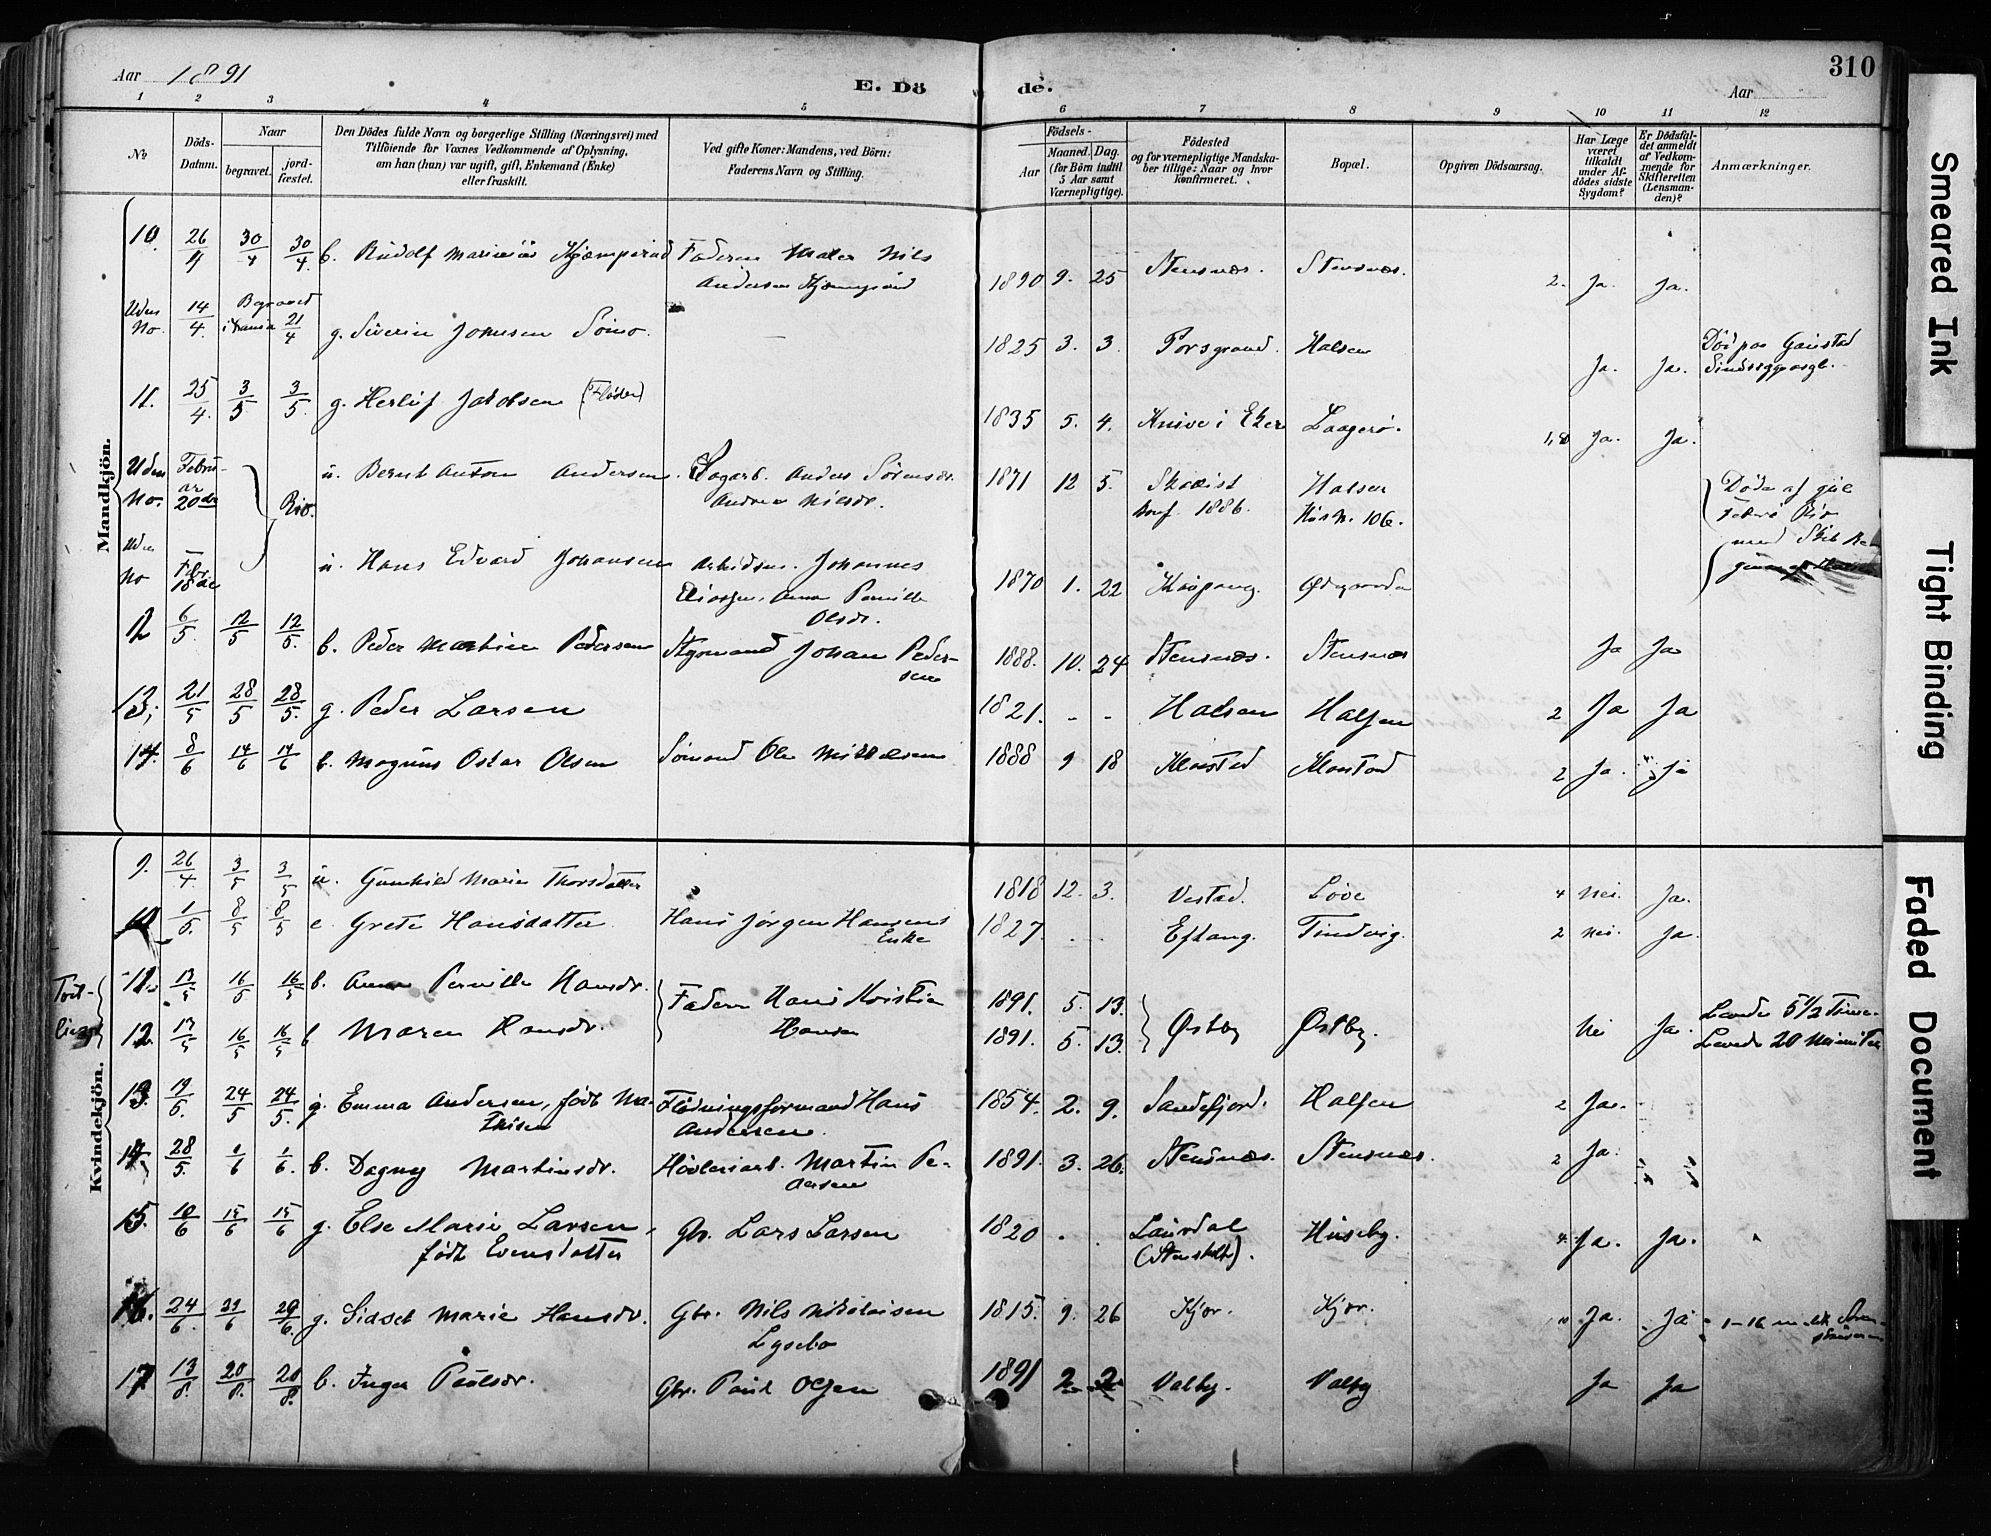 Aar 1891
E. Döde.
310
Aar
1 2 3 4 5 6 7 8 9 10 11 12
No
Döds-Datum.
Naar
begravet.
jord-fæstet.
Den Dödes fulde Navn og borgerlige Stilling (Næringsvei) med Tilföiende for Voxnes Vedkommende af Oplysning, om han (hun) var ugift, gift, Enkemand (Enke) eller fraskilt.
Ved gifte Koner: Mandens, ved Börn: Faderens Navn og Stilling.
Födsels-
Aar
Maaned. Dag.
(for Börn indtil 5 Aar samt Værnepligtige).
Födested og for værnepligtige Mandskaber tillige: Naar og hvor konfirmeret.
Bopæl.
Opgiven Dödsaarsag.
Har Læge været tilkaldt under Afdödes sidste Sygdom?
Er Dödsfaldet anmeldt af Vedkommende for Skifteretten (Lensmanden)?
Anmærkninger.
Mandkjön.
10. 26/4 30/4 30/4. b. Rudolf Marinius Faderen Maler Nils 1890 9. 25 Stensnæs. Stensnæs. 2. Ja. Ja.
Andersen
Uden No. 14/4. Begravet 21/4 g. Severin Johnsen 1825 3. 3. Porsgrund. Halsen Ja. Ja. Död paa Gaustad
11. 25/4. 3/5 3/5. g. Herluf Jakobsen 1835 5. 4. i Eker Laagerö. Ja. Ja.
Uden No. Februar 20de Rio. u. Bernt Anton Andersen. Anders 1871 12 5. Halsen
konf. 1886. 106.
Döde af gul
Feber i Rio
med Skib
Uden No Feb. 18de u. Hans Edvard Johansen Johannes 1870 1. 22
Anna Pernille
Olsdr.
12 6/5. 12/5 12/5. b. Peder Martin Pedersen Styrmand Johan Peder- 1888. 10. 24 Stensnæs. Stensnæs Ja Ja
sen
13. 21/5 28/5 28/5. g. Peder Larsen 1821. - - Halsen Halsen 2 Ja Ja
14. 8/6 14/6 14/6 b. Magnus Oskar Olsen Sömand Ole Mikkelsen 1888 9 18 Klonstad Klonstad 2 Ja. Ja
Kvindekjön.
9. 26/4 3/5 3/5 u. Gunhild Marie Thorsdatter 1818 12. 3. Vestad. Löve 4 Nei. Ja.
10 1/5. 8/5 8/5 e Grete Hansdatter Hans Jörgen Hansens 1827. . . Eftang. Tindvig. 2 Nei. Ja.
Enke
11. 13/5 16/5 16/5 b. Anna Pernille Hansdr. Faderen Hans Kristian 1891. 5. 13. Östby Östby. Nei Ja. Levede 5 1/2 Time.
12. 13/5 16/5 16/5 b Maren Hansdr. Hansen 1891. 5. 13. Levede 20 Minuter
13. 19/5. 24/5 24/5. g. Emma Andersen, födt Ma- Flödningsformand Hans 1854. 2. 9. Sandefjord. Halsen 2 Ja.
thisen Andersen.
14. 28/5 1/6 1/6. b. Dagny Martinsdr. Hövleriarb. Martin Pe- 1891. 3. 26. Stensnæs. Stensnæs. 2 Ja.
dersen
15. 10/6 15/6 15/6 g. Else Marie Larsen, Gbr. Lars Larsen 1820 . . Laurdal Huseby. 4. Ja. Ja.
födt Evensdatter
16. 24/6. 29/6 29/6. g. Sidsel Marie Hansdr. Gbr. Nils Nikolaisen 1815. 9. 26 Kjær. Kjær. Ja. Ja
Lysebo
17 13/8. 20/8. 20/8. b. Inger Paulsdr. Gbr. Paul Olsen 1891 2 2 Valby. Valby Ja Ja
Smeared Ink
Tight Binding
Faded Document